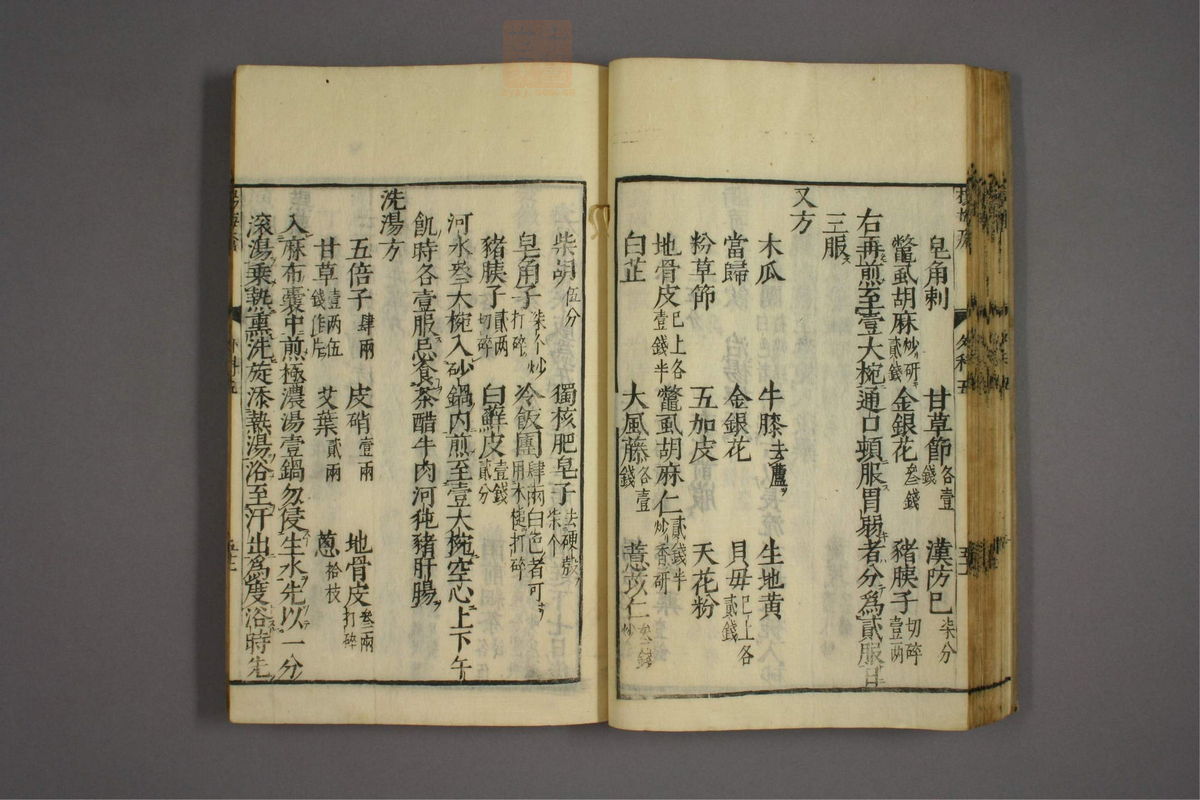 皂角刺 甘草節各壹錢 漢防巳柒分
鼈虱胡麻炒研貳錢 金銀花叁錢 豬胰子切碎壹兩
右再煎至壹大椀通口頓服胃弱者分爲貳服日
三服
又方
木瓜 牛膝去蘆 生地黄
當歸 金銀花 貝毋巳上各貳錢
粉草節 五加皮 天花粉
地骨皮巳上各壹錢半 鼈虱胡麻仁貳錢半炒香研
白芷 大風藤各壹錢 薏苡仁叁錢炒
柴胡伍分 獨核肥皂子去硬殼柒个
皂角子柒个炒打碎 冷飯團肆兩白色者可用木槌打碎
豬胰子貳兩切碎 白鮮皮壹錢貳分
河水叁大椀入砂鍋内煎至壹大椀空心上下午
飢時各壹服忌食茶醋牛肉河㹠豬肝腸
洗湯方
五倍子肆兩 皮硝壹兩 地骨皮叁兩打碎
甘草壹兩伍錢作片 艾葉貳兩 蔥拾枝
入麻布囊中煎極濃湯壹鍋勿侵生水先以一分
滚湯乗熱熏洗旋添熱湯浴至汗出爲度浴時先